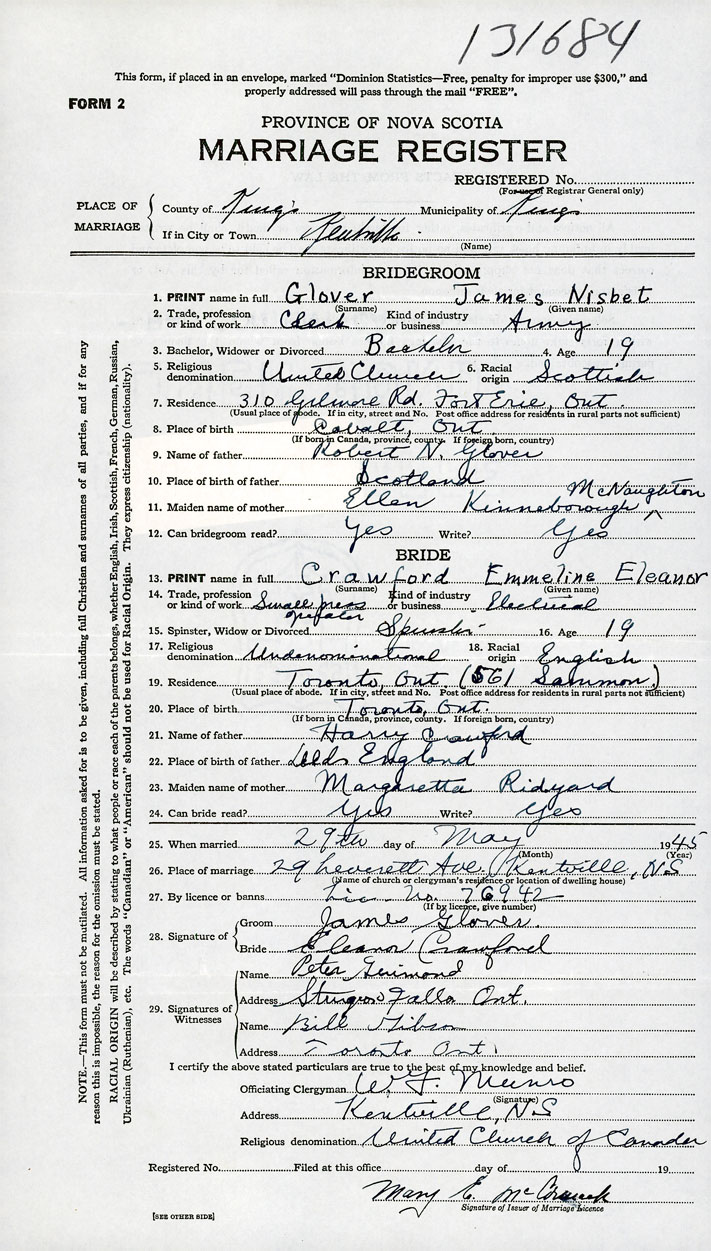 131684
This form, if placed in an envelope, marked "Dominion Statistics—Free, penalty for improper use $300," and
properly addressed will pass through the mail "FREE".
FORM 2
PROVINCE OF NOVA SCOTIA
MARRIAGE REGISTER
REGISTERED No.
(For use of Registrar General only)
PLACE OF MARRIAGE
County of King's Municipality of Kings
If in City or Town Kentville
(Name)
BRIDEGROOM
1. PRINT name in full Glover James Nisbet
(Surname) (Given name)
2. Trade, profession or kind of work Clerk Kind of industry or business Army
3. Bachelor, Widower or Divorced Bachelor 4. Age 19
5. Religious denomination United Church 6. Racial origin Scottish
7. Residence 310 Gilmore Rd. Fort Erie, Ont.
(Usual place of abode. If in city, street and No. Post office address for residents in rural parts not sufficient)
8. Place of birth Cobalt, Ont.
(If born in Canada, province, county. If foreign born, country)
9. Name of father Robert N. Glover
10. Place of birth of father Scotland
McNaughton
11. Maiden name of mother Ellen Kinneborough ^
12. Can bridegroom read? Yes Write? Yes
BRIDE
13. PRINT name in full Crawford Emmeline Eleanor
(Surname) (Given name)
14. Trade, profession or kind of work Small press operator Kind of industry or business Electrical
15. Spinster, Widow or Divorced Spinster 16. Age 19
17. Religious denomination Undenominational 18. Racial origin English
19. Residence Toronto, Ont. (561 Sammon)
(Usual place of abode. If in city, street and No. Post office address for residents in rural parts not sufficient)
20. Place of birth Toronto, Ont.
(If born in Canada, province, county. If foreign born, country)
21. Name of father Harry Crawford
22. Place of birth of father Leeds England
23. Maiden name of mother Margaretta Ridyard
24. Can bride read? Yes Write? Yes
25. When married 29th day of May 1945
(Month) (Year)
26. Place of marriage 29 Leverett Ave, Kentville, N.S
(Name of church or clergyman's residence or location of dwelling house)
27. By licence or banns Lic. No. 76942
(If by licence, give number)
28. Signature of
Groom James Glover.
Bride Eleanor Crawford
29. Signatures of Witnesses
Name Peter
Address Sturgeon Falls Ont.
Name Bill Gibson
Address Toronto Ont.
I certify the above stated particulars are true to the best of my knowledge and belief.
Officiating Clergyman W. J. Munro
(Signature)
Address Kentville, N.S
Religious denomination United Church of Canada
Registered No. Filed at this office day of 19
Mary E.
Signature of Issuer of Marriage Licence
[SEE OTHER SIDE]
NOTE.—This form must not be mutilated. All information asked for is to be given, including full Christian and surnames of all parties, and if for any
reason this is impossible, the reason for the omission must be stated.
RACIAL ORIGIN will be described by stating to what people or race each of the parents belongs, whether English, Irish, Scottish, French, German, Russian,
Ukrainian (Ruthenian), etc. The words "Canadian" or "American" should not be used for Racial Origin. They express citizenship (nationality).